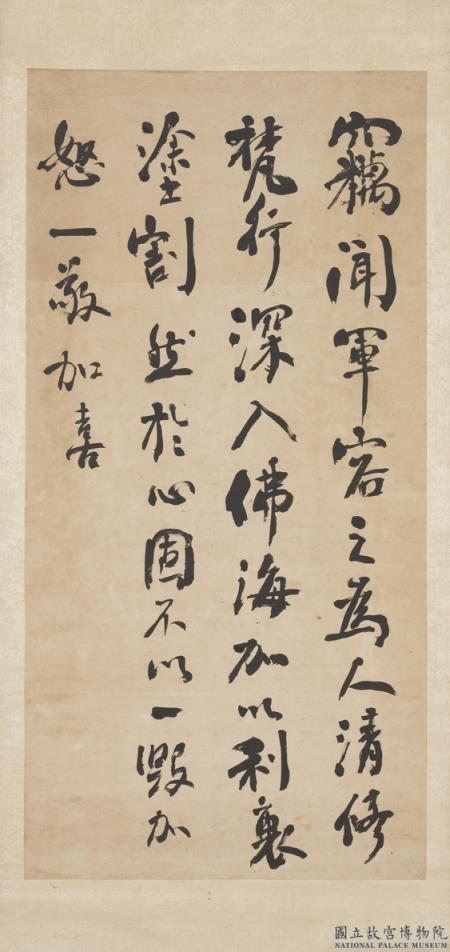 竊聞軍容之為人清修
梵行深入佛海加以利衰
塗割然於心固不以一毀加
怒一敬加喜
國立故宮博物院
NATIONAL PALACE MUSEUM